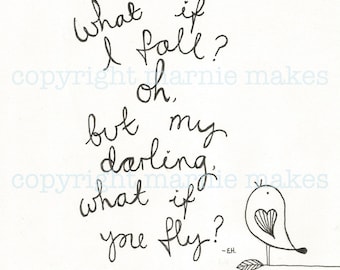 what if
I fall?
copyright marnie makes
oh,
but my
darling,
copyright marnie makes
what if
you fly?
-EH.